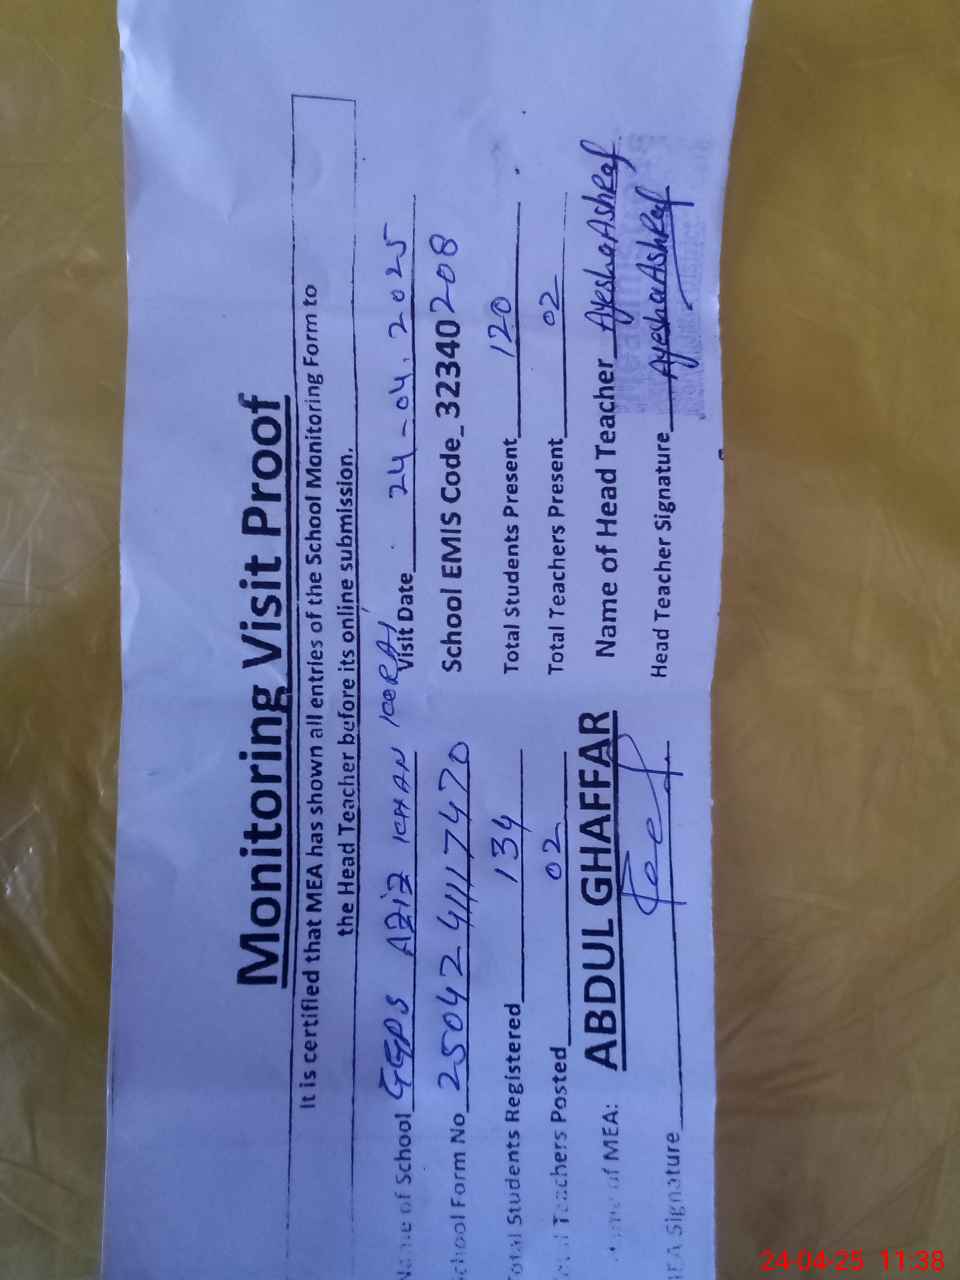 Monitoring Visit Proof
It is certified that MEA has shown all entries of the School Monitoring Form to
the Head Teacher before its online submission.
Name of School GGPS AZIZ KHAN KORAI Visit Date 24-04.2025
School Form No 25042411117470 School EMIS Code_32340208
Total Students Registered 134 Total Students Present 120
Total Teachers Posted 02 Total Teachers Present 02
Name of MEA: ABDUL GHAFFAR Name of Head Teacher Ayesha Ashraf
MEA Signature Head Teacher Signature Ayesha Ashraf
24-04-25 11:38